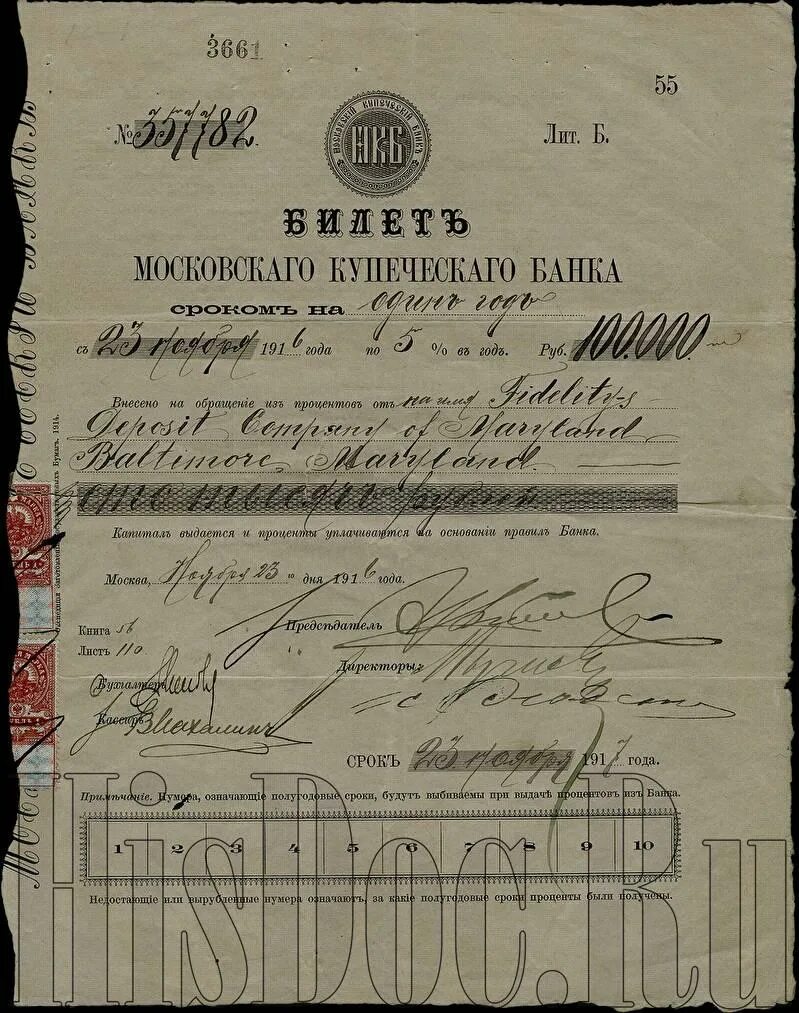 3661
55
№ 357782.
МОСКОВСКІЙ КУПЕЧЕСКІЙ БАНКЪ
МКБ
Лит. Б.
БИЛЕТЪ
МОСКОВСКАГО КУПЕЧЕСКАГО БАНКА
срокомъ на одинъ годъ
съ 23 Ноября 1916 года по 5 % въ годъ. Руб. 100.000
Внесено на обращеніе изъ процентовъ отъ на имя Fidelity-s
Deposit Company of Maryland
Baltimore, Maryland.
сто тысячъ рублей
Капиталъ выдается и проценты уплачиваются на основаніи правилъ Банка.
Москва, Ноября 23 дня 1916 года.
Предсѣдатель
Книга 56
Листъ 110
Директоры:
Бухгалтеръ
Кассиръ
СРОКЪ 23 Ноября 1917 года.
Примѣчаніе. Нумера, означающіе полугодовые сроки, будутъ выбиваемы при выдачѣ процентовъ изъ Банка.
1 2 3 4 5 6 7 8 9 10
Недостающіе или вырубленные нумера означаютъ, за какіе полугодовые сроки проценты были получены.
Заготовленія Государственныхъ Бумагъ. 1914.
HisDoc.Ru